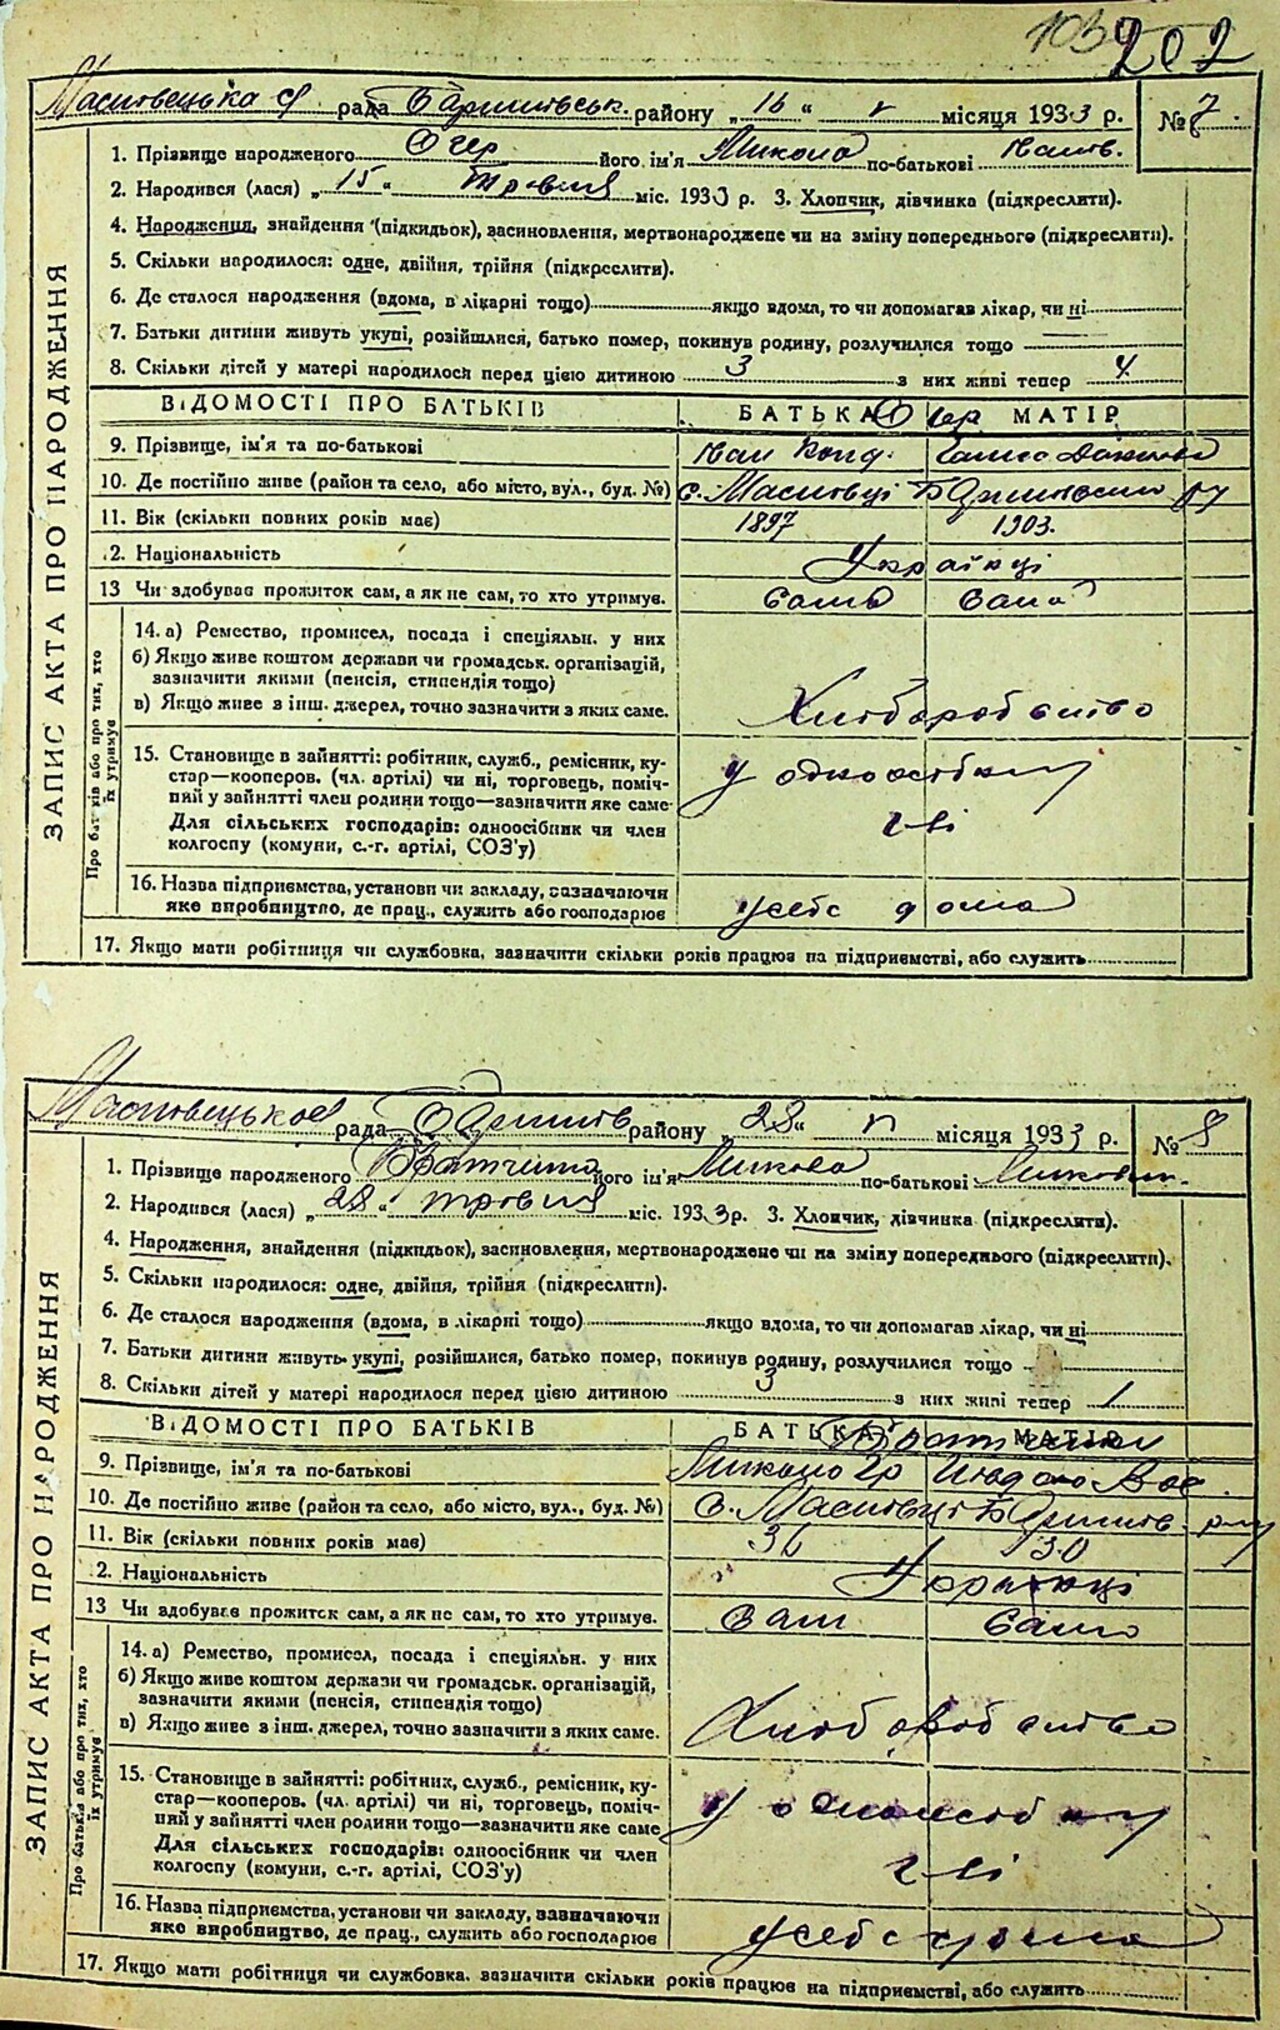 103 202
Масловецька с/ рада Баришівськ. району „16“ V місяця 1933 р. № 7.
1. Прізвище народженого Очер його ім'я Микола по-батькові Іванов.
2. Народився (лася) „15“ травня міс. 1933 р. 3. Хлопчик, дівчинка (підкреслити).
4. Народження, знайдення (підкидьок), засиновлення, мертвонароджене чи на зміну попереднього (підкреслити).
5. Скільки народилося: одне, двійня, трійня (підкреслити).
6. Де сталося народження (вдома, в лікарні тощо) якщо вдома, то чи допомагав лікар, чи ні
7. Батьки дитини живуть укупі, розійшлися, батько помер, покинув родину, розлучилися тощо
8. Скільки дітей у матері народилося перед цією дитиною 3 з них живі тепер 4
ВІДОМОСТІ ПРО БАТЬКІВ БАТЬКА Очер МАТІР
9. Прізвище, ім'я та по-батькові Іван Конд.
10. Де постійно живе (район та село, або місто, вул., буд. №) с. Масківці
11. Вік (скільки повних років має) 1897 1903.
2. Національність Українці
13 Чи здобуває прожиток сам, а як не сам, то хто утримує. Сама
14. а) Ремество, промисел, посада і спеціяльн. у них
б) Якщо живе коштом держави чи громадськ. організацій,
зазначити якими (пенсія, стипендія тощо)
в) Якщо живе з інш. джерел, точно зазначити з яких саме.
Хліборобство
15. Становище в зайнятті: робітник, служб., ремісник, ку-
стар—кооперов. (чл. артілі) чи ні, торговець, поміч-
ний у зайнятті член родини тощо—зазначити яке саме
Для сільських господарів: одноосібник чи член
колгоспу (комуни, с.-г. артілі, СОЗ'у)
у одноосібному
г-ві
16. Назва підприємства, установи чи закладу, зазначаючи
яке виробництво, де прац., служить або господарює у себе дома
17. Якщо мати робітниця чи службовка, зазначити скільки років працює на підприємстві, або служить
ЗАПИС АКТА ПРО НАРОДЖЕННЯ
Про батьків або про тих, хто
їх утримує
рада району „28“ місяця 1933 р. № 8
1. Прізвище народженого його ім'я Микола по-батькові
2. Народився (лася) „28“ травня міс. 1933 р. 3. Хлопчик, дівчинка (підкреслити).
4. Народження, знайдення (підкидьок), засиновлення, мертвонароджене чи на зміну попереднього (підкреслити).
5. Скільки народилося: одне, двійня, трійня (підкреслити).
6. Де сталося народження (вдома, в лікарні тощо) якщо вдома, то чи допомагав лікар, чи ні
7. Батьки дитини живуть укупі, розійшлися, батько помер, покинув родину, розлучилися тощо
8. Скільки дітей у матері народилося перед цією дитиною 3 з них живі тепер 1
ВІДОМОСТІ ПРО БАТЬКІВ БАТЬКА МАТІР
9. Прізвище, ім'я та по-батькові Микола Гр
10. Де постійно живе (район та село, або місто, вул., буд. №) с. Масківці
11. Вік (скільки повних років має) 36 30
2. Національність Українці
13 Чи здобуває прожиток сам, а як не сам, то хто утримує. Сам Сама
14. а) Ремество, промисел, посада і спеціяльн. у них
б) Якщо живе коштом держави чи громадськ. організацій,
зазначити якими (пенсія, стипендія тощо)
в) Якщо живе з інш. джерел, точно зазначити з яких саме.
Хліборобство
15. Становище в зайнятті: робітник, служб., ремісник, ку-
стар—кооперов. (чл. артілі) чи ні, торговець, поміч-
ний у зайнятті член родини тощо—зазначити яке саме
Для сільських господарів: одноосібник чи член
колгоспу (комуни, с.-г. артілі, СОЗ'у)
у одноосібному
г-ві
16. Назва підприємства, установи чи закладу, зазначаючи
яке виробництво, де прац., служить або господарює у себе дома
17. Якщо мати робітниця чи службовка, зазначити скільки років працює на підприємстві, або служить
ЗАПИС АКТА ПРО НАРОДЖЕННЯ
Про батьків або про тих, хто
їх утримує